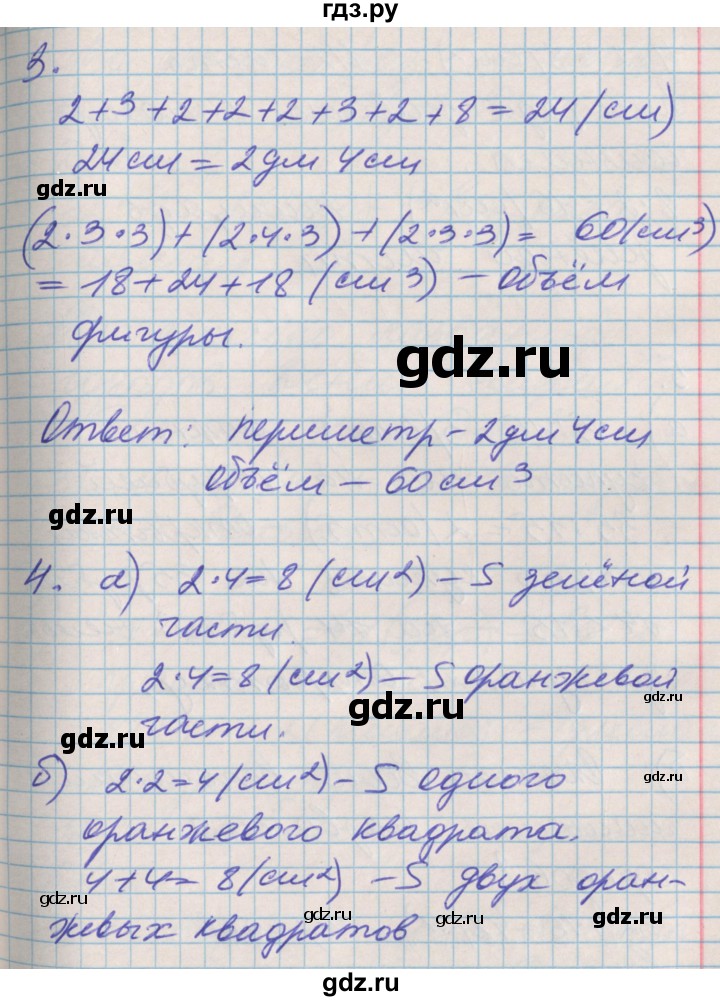 гдз.ру
3.
2+3+2+2+2+3+2+8=24(см)
24см=2дм 4см
gdz.ru
(2·3·3)+(2·4·3)+(2·3·3)= 60(см3)
=18+24+18(см3)-объём
фигуры.
gdz.ru
Ответ: периметр-2дм 4см
объём-60см3
gdz.ru
4. а) 2·4=8(см2)-S зелёной
части.
2·4=8(см2)-S оранжевой
gdz.ru
gdz.ru
части.
gdz.ru
б) 2·2=4(см2)-S одного
gdz.ru
оранжевого квадрата.
4+4=8(см2)-S двух оран-
gdz.ru
gdz.ru
gdz.ru
gdz.ru
жевых квадратов
gdz.ru